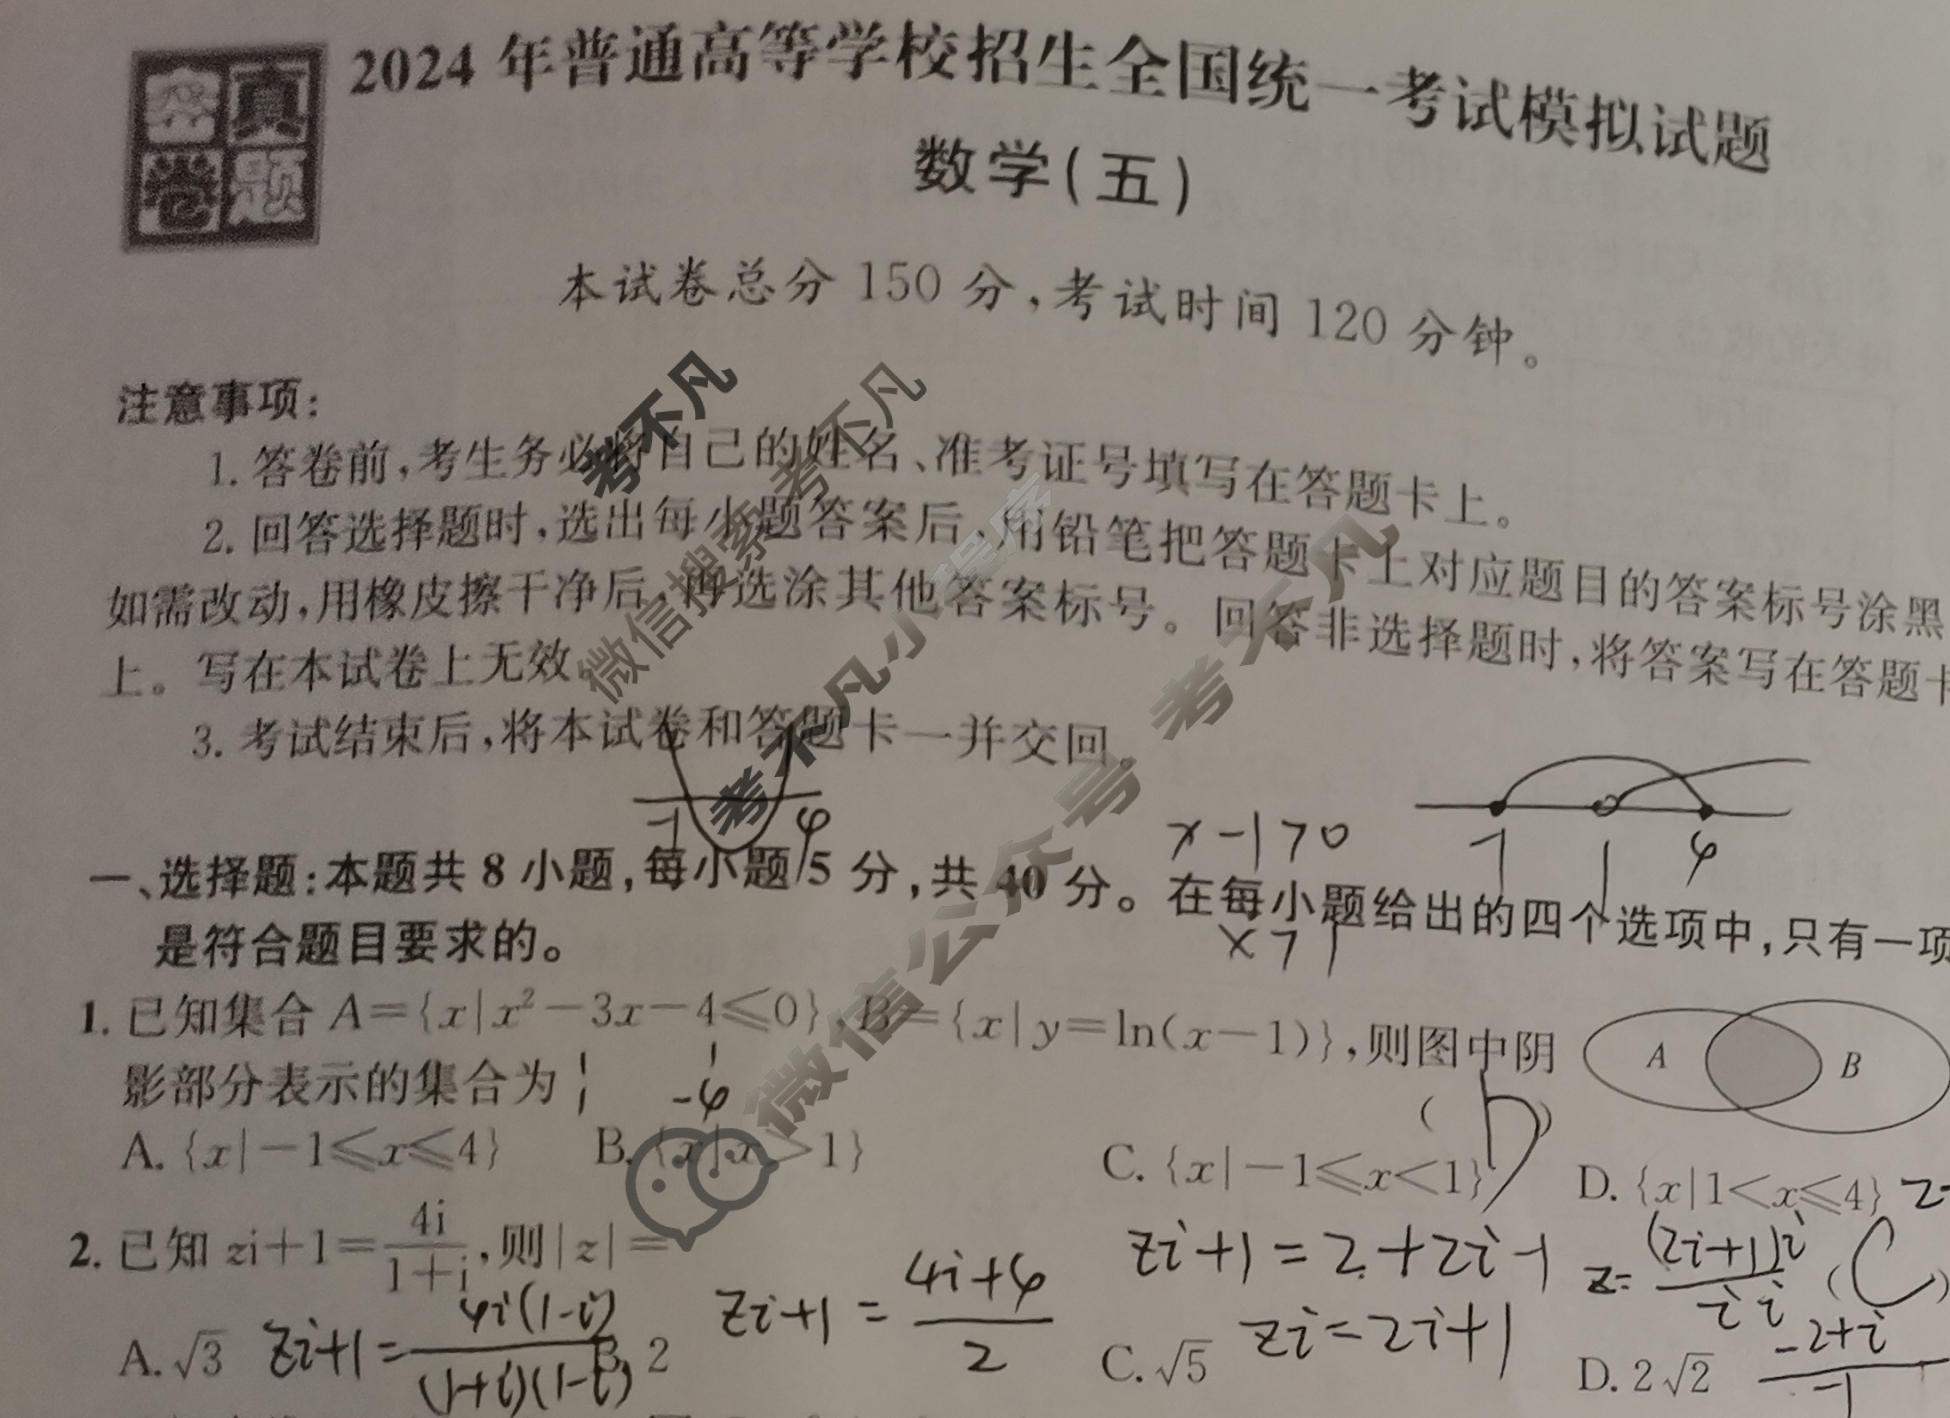 密真
卷题
2024年普通高等学校招生全国统一考试模拟试题
数学(五)
本试卷总分150分,考试时间120分钟。
注意事项:
1. 答卷前,考生务必将自己的姓名、准考证号填写在答题卡上。
2. 回答选择题时,选出每小题答案后,用铅笔把答题卡上对应题目的答案标号涂黑
如需改动,用橡皮擦干净后,再选涂其他答案标号。回答非选择题时,将答案写在答题卡
上。写在本试卷上无效。
3. 考试结束后,将本试卷和答题卡一并交回。
考不凡
微信搜索 考不凡
考不凡小程序
微信公众号 考不凡
-1 4
x-1>0
-1 1 4
x>1
一、选择题:本题共8小题,每小题5分,共40分。在每小题给出的四个选项中,只有一项
是符合题目要求的。
1. 已知集合A={x|x²-3x-4≤0},B={x|y=ln(x-1)},则图中阴
影部分表示的集合为 ( D )
1 1
-4
A B
A. {x|-1≤x≤4} B. {x|x>1} C. {x|-1≤x<1} D. {x|1<x≤4}
2. 已知zi+1=4i/(1+i),则|z|= ( C )
zi+1=2+2i-1
z=(2i+1)i/i i
A. √3 B. 2 C. √5 D. 2√2
zi+1=4i(1-i)/(1+i)(1-i)
zi+1=(4i+4)/2
zi=2i+1
-2+i/-1